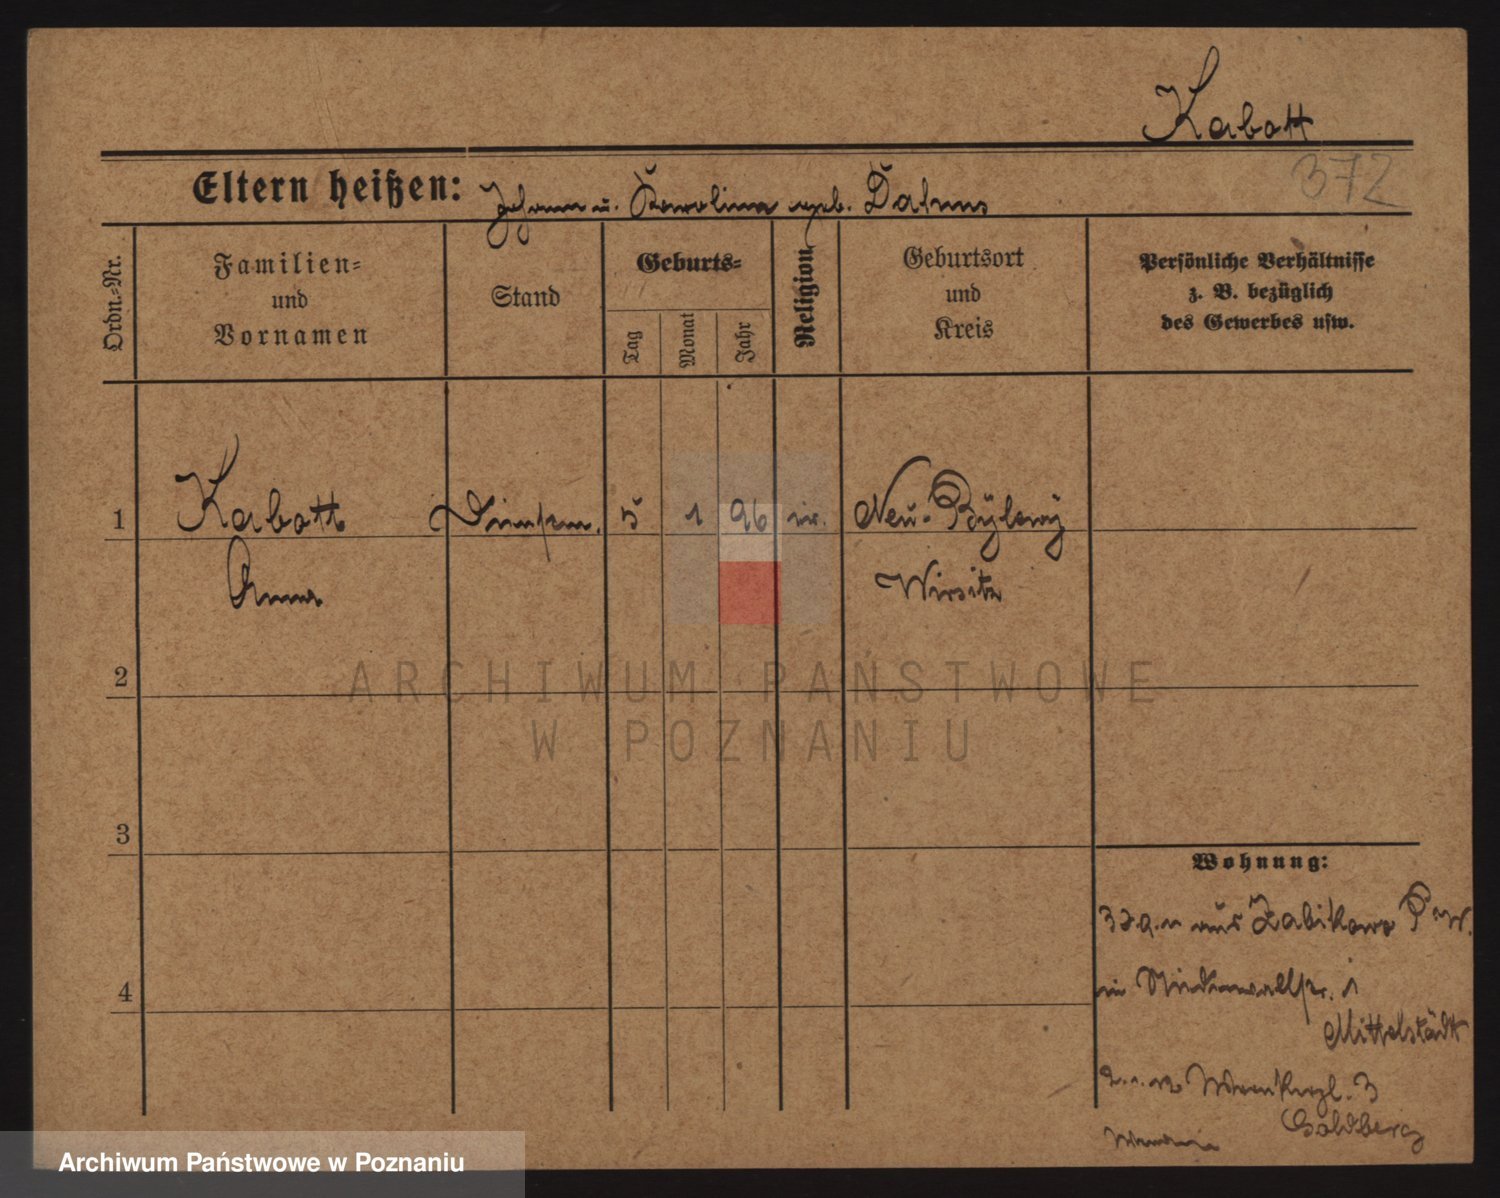 Kabott
372
Eltern heißen: Johann u. Karolina geb. Dalms
Ordn.=Nr.
Familien=
und
Vornamen
Stand
Geburts=
Tag
Monat
Jahr
Religion
Geburtsort
und
Kreis
Persönliche Verhältnisse
z. B. bezüglich
des Gewerbes usw.
1 Kabott 5 1 96 Neu-
Anna Wirsitz
2
3
4
Wohnung:
aus Zabikowo P. W.
in 1
Mittelstädt
3
Goldberg
ARCHIWUM PAŃSTWOWE
W POZNANIU
Archiwum Państwowe w Poznaniu